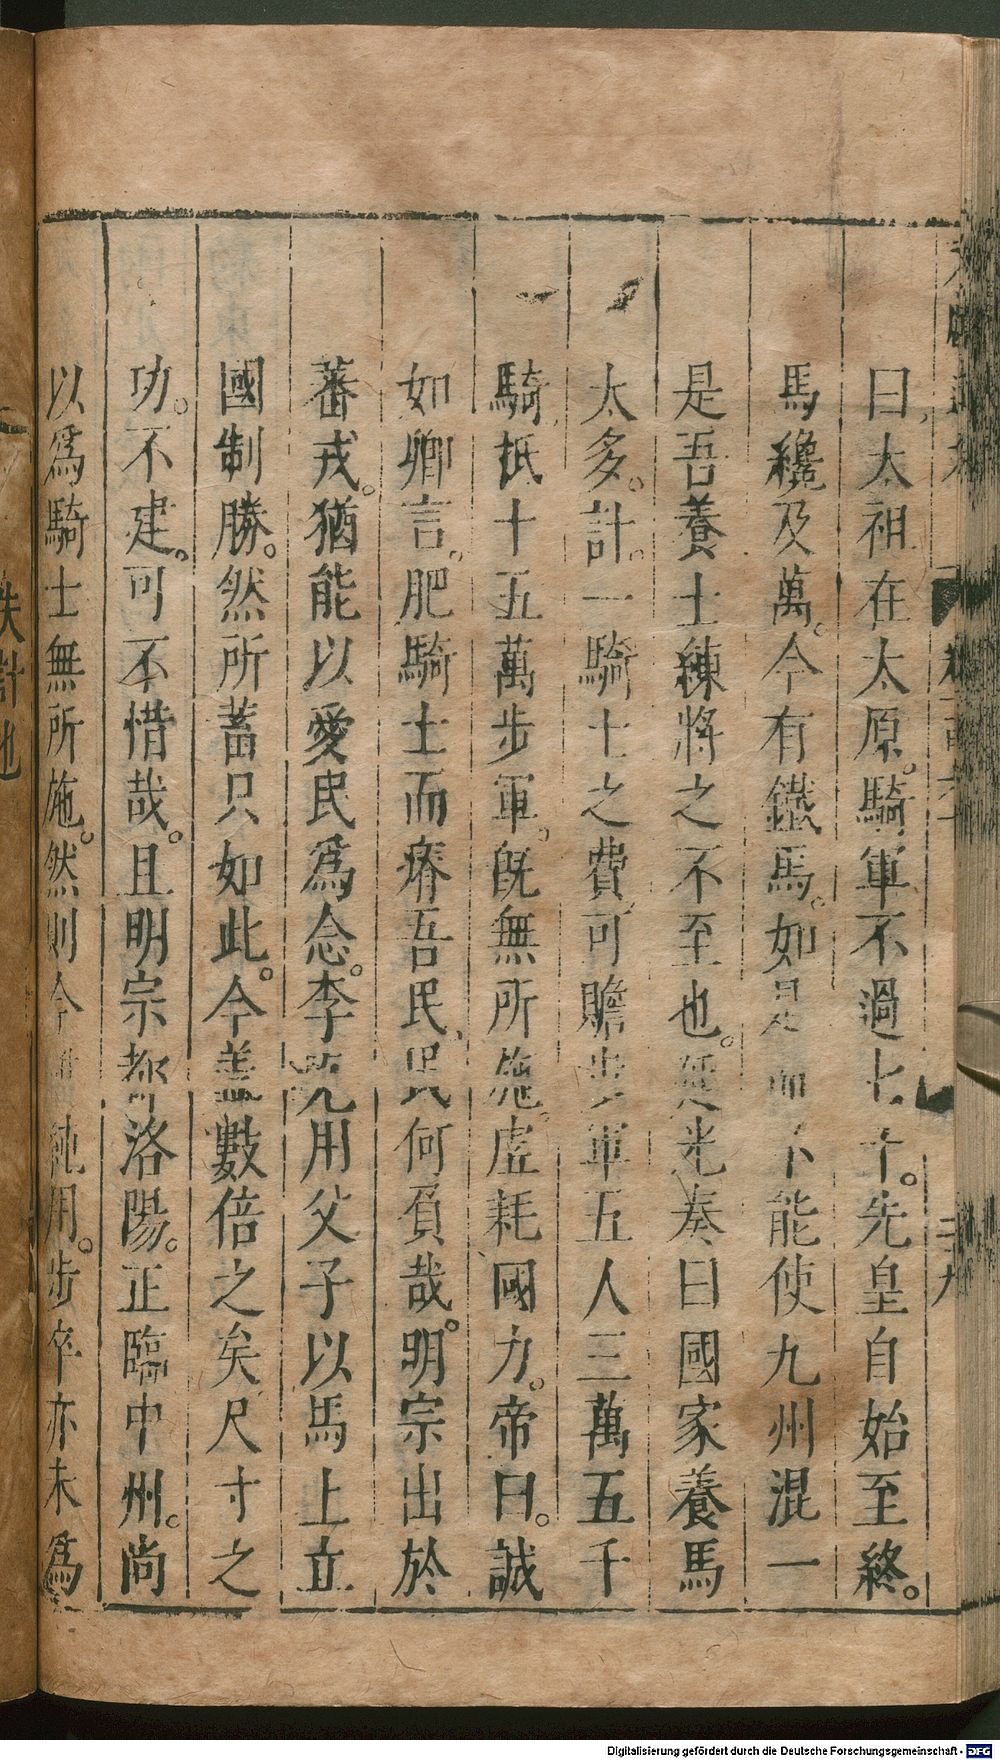 曰太祖在太原。騎軍不過七千。先皇自始至終。
馬纔及萬。今有鐵馬。如是而不能使九州混一
是吾養士練將之不至也。延光奏曰國家養馬
太多。計。一騎士之費可贍步軍五人三萬五千
騎抵十五萬步軍。旣無所施。虛耗國力。帝曰。誠
如卿言。肥騎士而瘠吾民、民何負哉。明宗出於
蕃戎。猶能以愛民爲念。李克用父子以馬上立
國制勝。然所蓄只如此。今蓋數倍之矣尺寸之
功。不建。可不惜哉。且明宗都洛陽。正臨中州。尚
以爲騎士無所施。然則今 純用。步卒亦未爲
失計也
Digitalisierung gefördert durch die Deutsche Forschungsgemeinschaft - DFG